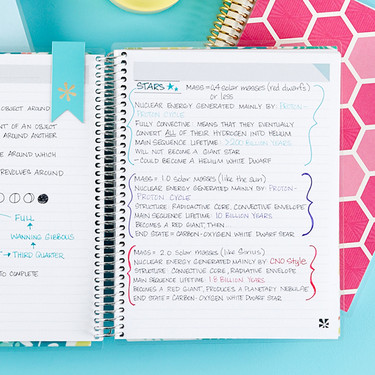 OBJECT AROUND
ENT OF AN OBJECT
AROUND ANOTHER
AROUND WHICH
REVOLVES AROUND
FULL
WANNING GIBBOUS
THIRD QUARTER
TO COMPLETE
STARS MASS = 0.4 solar masses (red dwarfs)
or less
NUCLEAR ENERGY GENERATED MAINLY BY: PROTON-
PROTON CYCLE
FULLY CONVECTIVE: MEANS THAT THEY EVENTUALLY
CONVERT ALL OF THEIR HYDROGEN INTO HELIUM
MAIN SEQUENCE LIFETIME: >200 BILLION YEARS
WILL NOT BECOME A GIANT STAR
- COULD BECOME A HELIUM WHITE DWARF
MASS = 1.0 solar masses (like the sun)
NUCLEAR ENERGY GENERATED MAINLY BY: PROTON-
PROTON CYCLE
STRUCTURE: RADIOACTIVE CORE, CONVECTIVE ENVELOPE
MAIN SEQUENCE LIFETIME: 10 BILLION YEARS
BECOMES A RED GIANT, THEN
END STATE = CARBON-OXYGEN WHITE DWARF STAR
MASS = 2.0 solar masses (like Sirius)
NUCLEAR ENERGY GENERATED MAINLY BY CNO Style
STRUCTURE: CONVECTIVE CORE, RADIATIVE ENVELOPE
MAIN SEQUENCE LIFETIME: 1.8 BILLION YEARS
BECOMES A RED GIANT, PRODUCES A PLANETARY NEBULAE
END STATE = CARBON-OXYGEN WHITE DWARF STAR